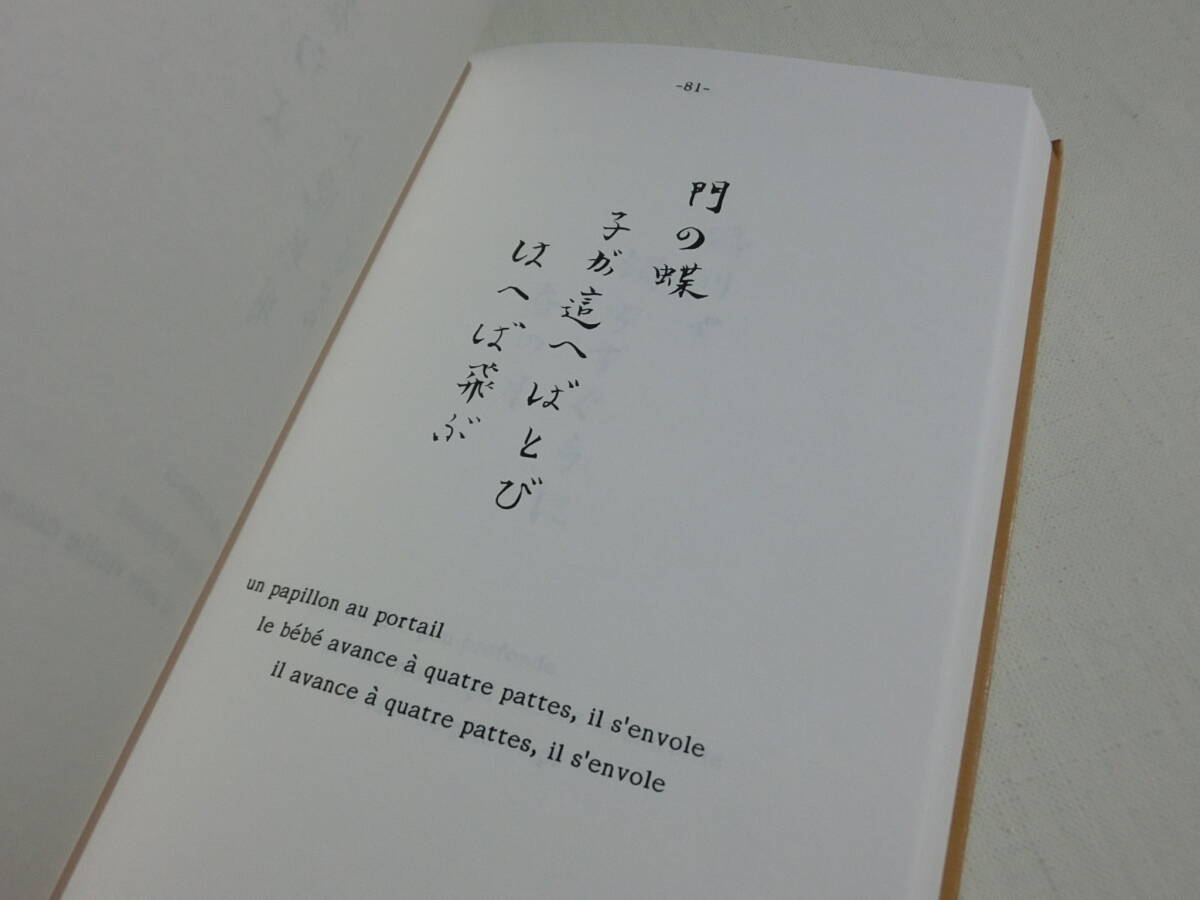 -81-
門の蝶
子が這へばとび
はへば飛ぶ
un papillon au portail
le bébé avance à quatre pattes, il s'envole
il avance à quatre pattes, il s'envole